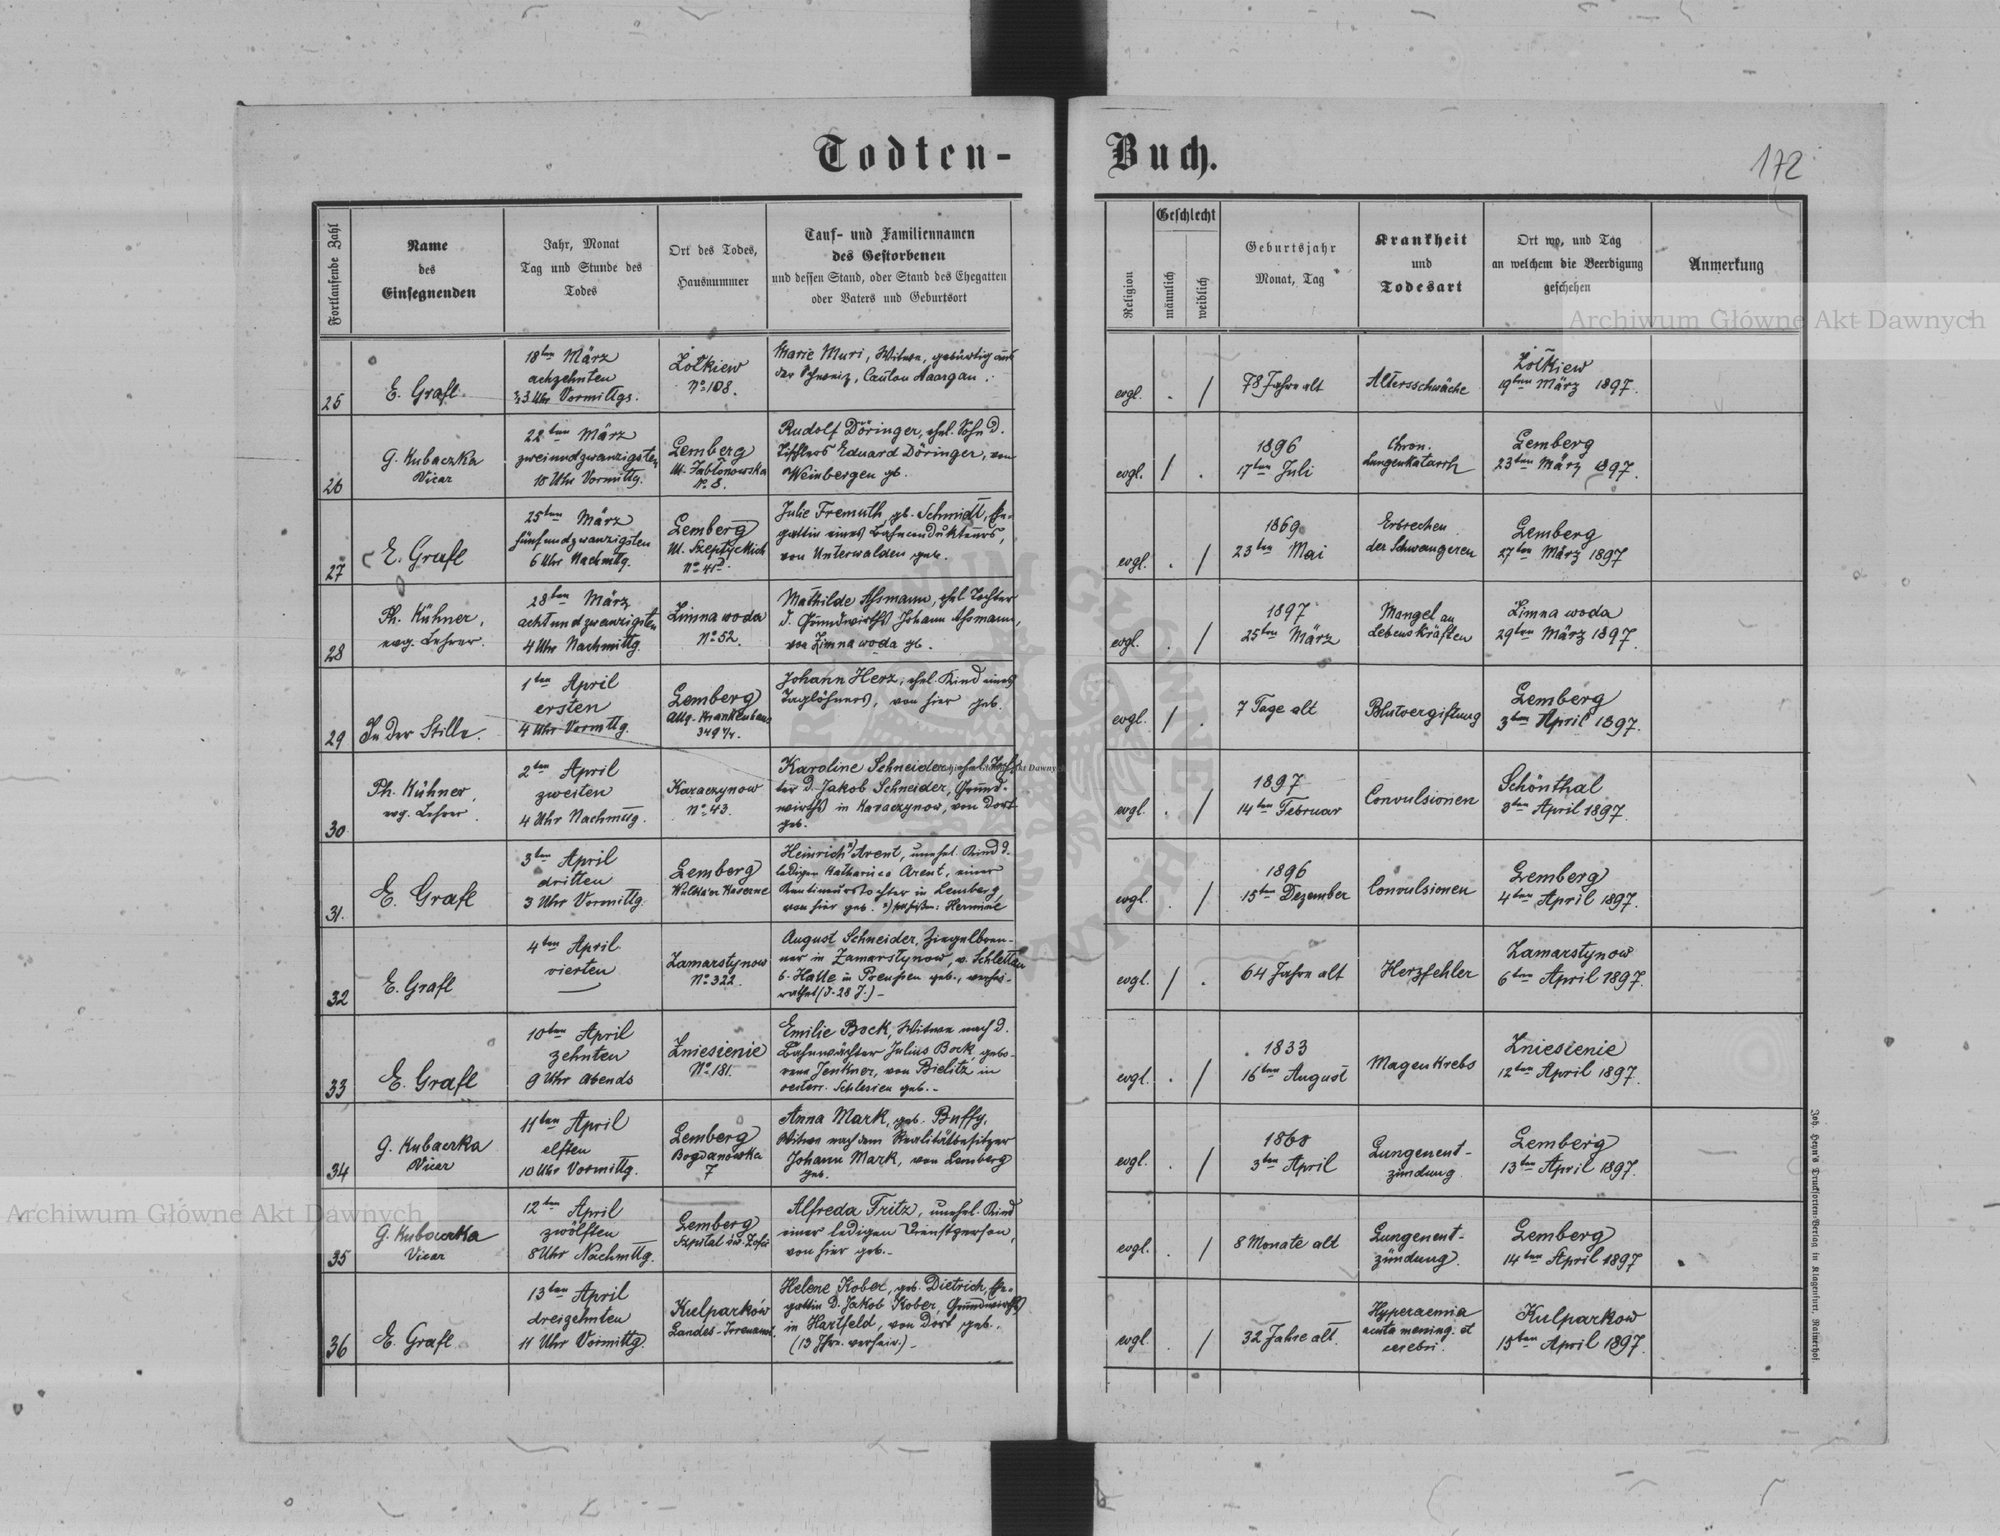 Todten-
Buch.
172
Fortlaufende Zahl
Name
des
Einsegnenden
Jahr, Monat
Tag und Stunde des
Todes
Ort des Todes,
Hausnummer
Tauf- und Familiennamen
des Gestorbenen
und dessen Stand, oder Stand des Ehegatten
oder Vaters und Geburtsort
Religion
Geschlecht
männlich
weiblich
Geburtsjahr
Monat, Tag
Krankheit
und
Todesart
Ort wo, und Tag
an welchem die Beerdigung
geschehen
Anmerkung
Archiwum Główne Akt Dawnych
25
E. Grafl.
18ten März
achzehnten
½3 Uhr Vormittgs.
Żółkiew
No. 108.
Marie Muri, Witwe, gebürtig aus
der Schweiz, Canton Aargau.
evgl. . /
78 Jahre alt
Altersschwäche
Żółkiew
19ten März 1897.
26
G. Kubaczka
Vicar
22ten März
zweiundzwanzigsten
10 Uhr Vormittg.
Lemberg
Ul. Jabłonowska
No. 8.
Rudolf Döringer, ehel. Sohn d.
Tischlers Eduard Döringer, von
Weinbergen gb.
evgl. / .
1896
17ten Juli
Chron.
Lungenkatarrh
Lemberg
23ten März 1897.
27
E. Grafl
25ten März
fünfundzwanzigsten
6 Uhr Nachmittg.
Lemberg
Ul. Szeptyckich
No. 41D.
Julie Fremuth gb. Schmidt, Ehe-
gattin eines Bahncondukteurs,
von Unterwalden geb.
evgl. . /
1869
23ten Mai
Erbrechen
der Schwangeren
Lemberg
27ten März 1897
28
Ph. Kühner,
evg. Lehrer.
28ten März
achtundzwanzigsten
4 Uhr Nachmittg.
Zimna woda
No. 52.
Mathilde Ahsmann, ehel. Tochter
d. Grundwirths Johann Ahsmann,
von Zimna woda gb.
evgl. . /
1897
25ten März
Mangel an
Lebenskräften
Zimna woda
29ten März 1897.
29
In der Stille.
1ten April
ersten
4 Uhr Vormttg.
Lemberg
Allg. Krankenhaus
349 ¼.
Johann Herz, ehel. Kind eines
Taglöhners, von hier geb.
evgl. / .
7 Tage alt
Blutvergiftung
Lemberg
3ten April 1897.
30
Ph. Kühner,
evg. Lehrer.
2ten April
zweiten
4 Uhr Nachmittg.
Karaczynow
No. 43.
Karoline Schneider, ehel. Toch-
ter d. Jakob Schneider, Grund-
wirths in Karaczynow, von dort
geb.
evgl. . /
1897
14ten Februar
Convulsionen
Schönthal
3ten April 1897.
31.
E. Grafl
3ten April
dritten
3 Uhr Vormittg.
Lemberg
Heinrich*) Arent, unehel. Kind d.
ledigen Katharina Arent, einer
Kantineurstochter in Lemberg,
von hier geb. Hermine
evgl. . /
1896
15ten Dezember
Convulsionen
Lemberg
4ten April 1897.
32
E. Grafl
4ten April
vierten
Zamarstynow
No. 322.
August Schneider, Ziegelbren-
ner in Zamarstynow, v. Schlettau
b. Halle in Preußen geb., verhei-
rathet (d. 28 J.) -
evgl. / .
64 Jahre alt
Herzfehler
Zamarstynow
6ten April 1897.
33
E. Grafl
10ten April
zehnten
9 Uhr Abends
Zniesienie
No. 181.
Emilie Bock, Witwe nach d.
Bahnwächter Julius Bock, gebo-
rene Jenkner, von Bielitz in
oesterr. Schlesien geb.-
evgl. . /
1833
16ten August
Magenkrebs
Zniesienie
12ten April 1897.
34
G. Kubaczka
Vicar
11ten April
elften
10 Uhr Vormittg.
Lemberg
Bogdanowka
7
Anna Mark, geb. Buffy,
Witwe nach dem Realitätbesitzer
Johann Mark, von Lemberg
geb.
evgl. . /
3ten April
Lungenent-
zündung
Lemberg
13ten April 1897.
35
G. Kubaczka
Vicar
12ten April
zwölften
8 Uhr Nachmttg.
Lemberg
Szpital św. Zofii
Alfreda Fritz, unehel. Kind
einer ledigen Dienstperson,
von hier geb.-
evgl. . /
8 Monate alt
Lungenent-
zündung.
Lemberg
14ten April 1897
36
E. Grafl.
13ten April
dreizehnten
11 Uhr Vormittg.
Kulparków
Landes-Irrenanst.
Helene Kober, geb. Dietrich, Ehe-
gattin d. Jakob Kober, Grundwirths
in Hartfeld, von dort geb.,
(13 Jhre. verheir.) -
evgl. . /
32 Jahre alt
Hyperaemia
acuta mening. et
cerebri.
Kulparkow
15ten April 1897.
Archiwum Główne Akt Dawnych
Joh. Heyn's Drucksorten-Verlag in Klagenfurt.